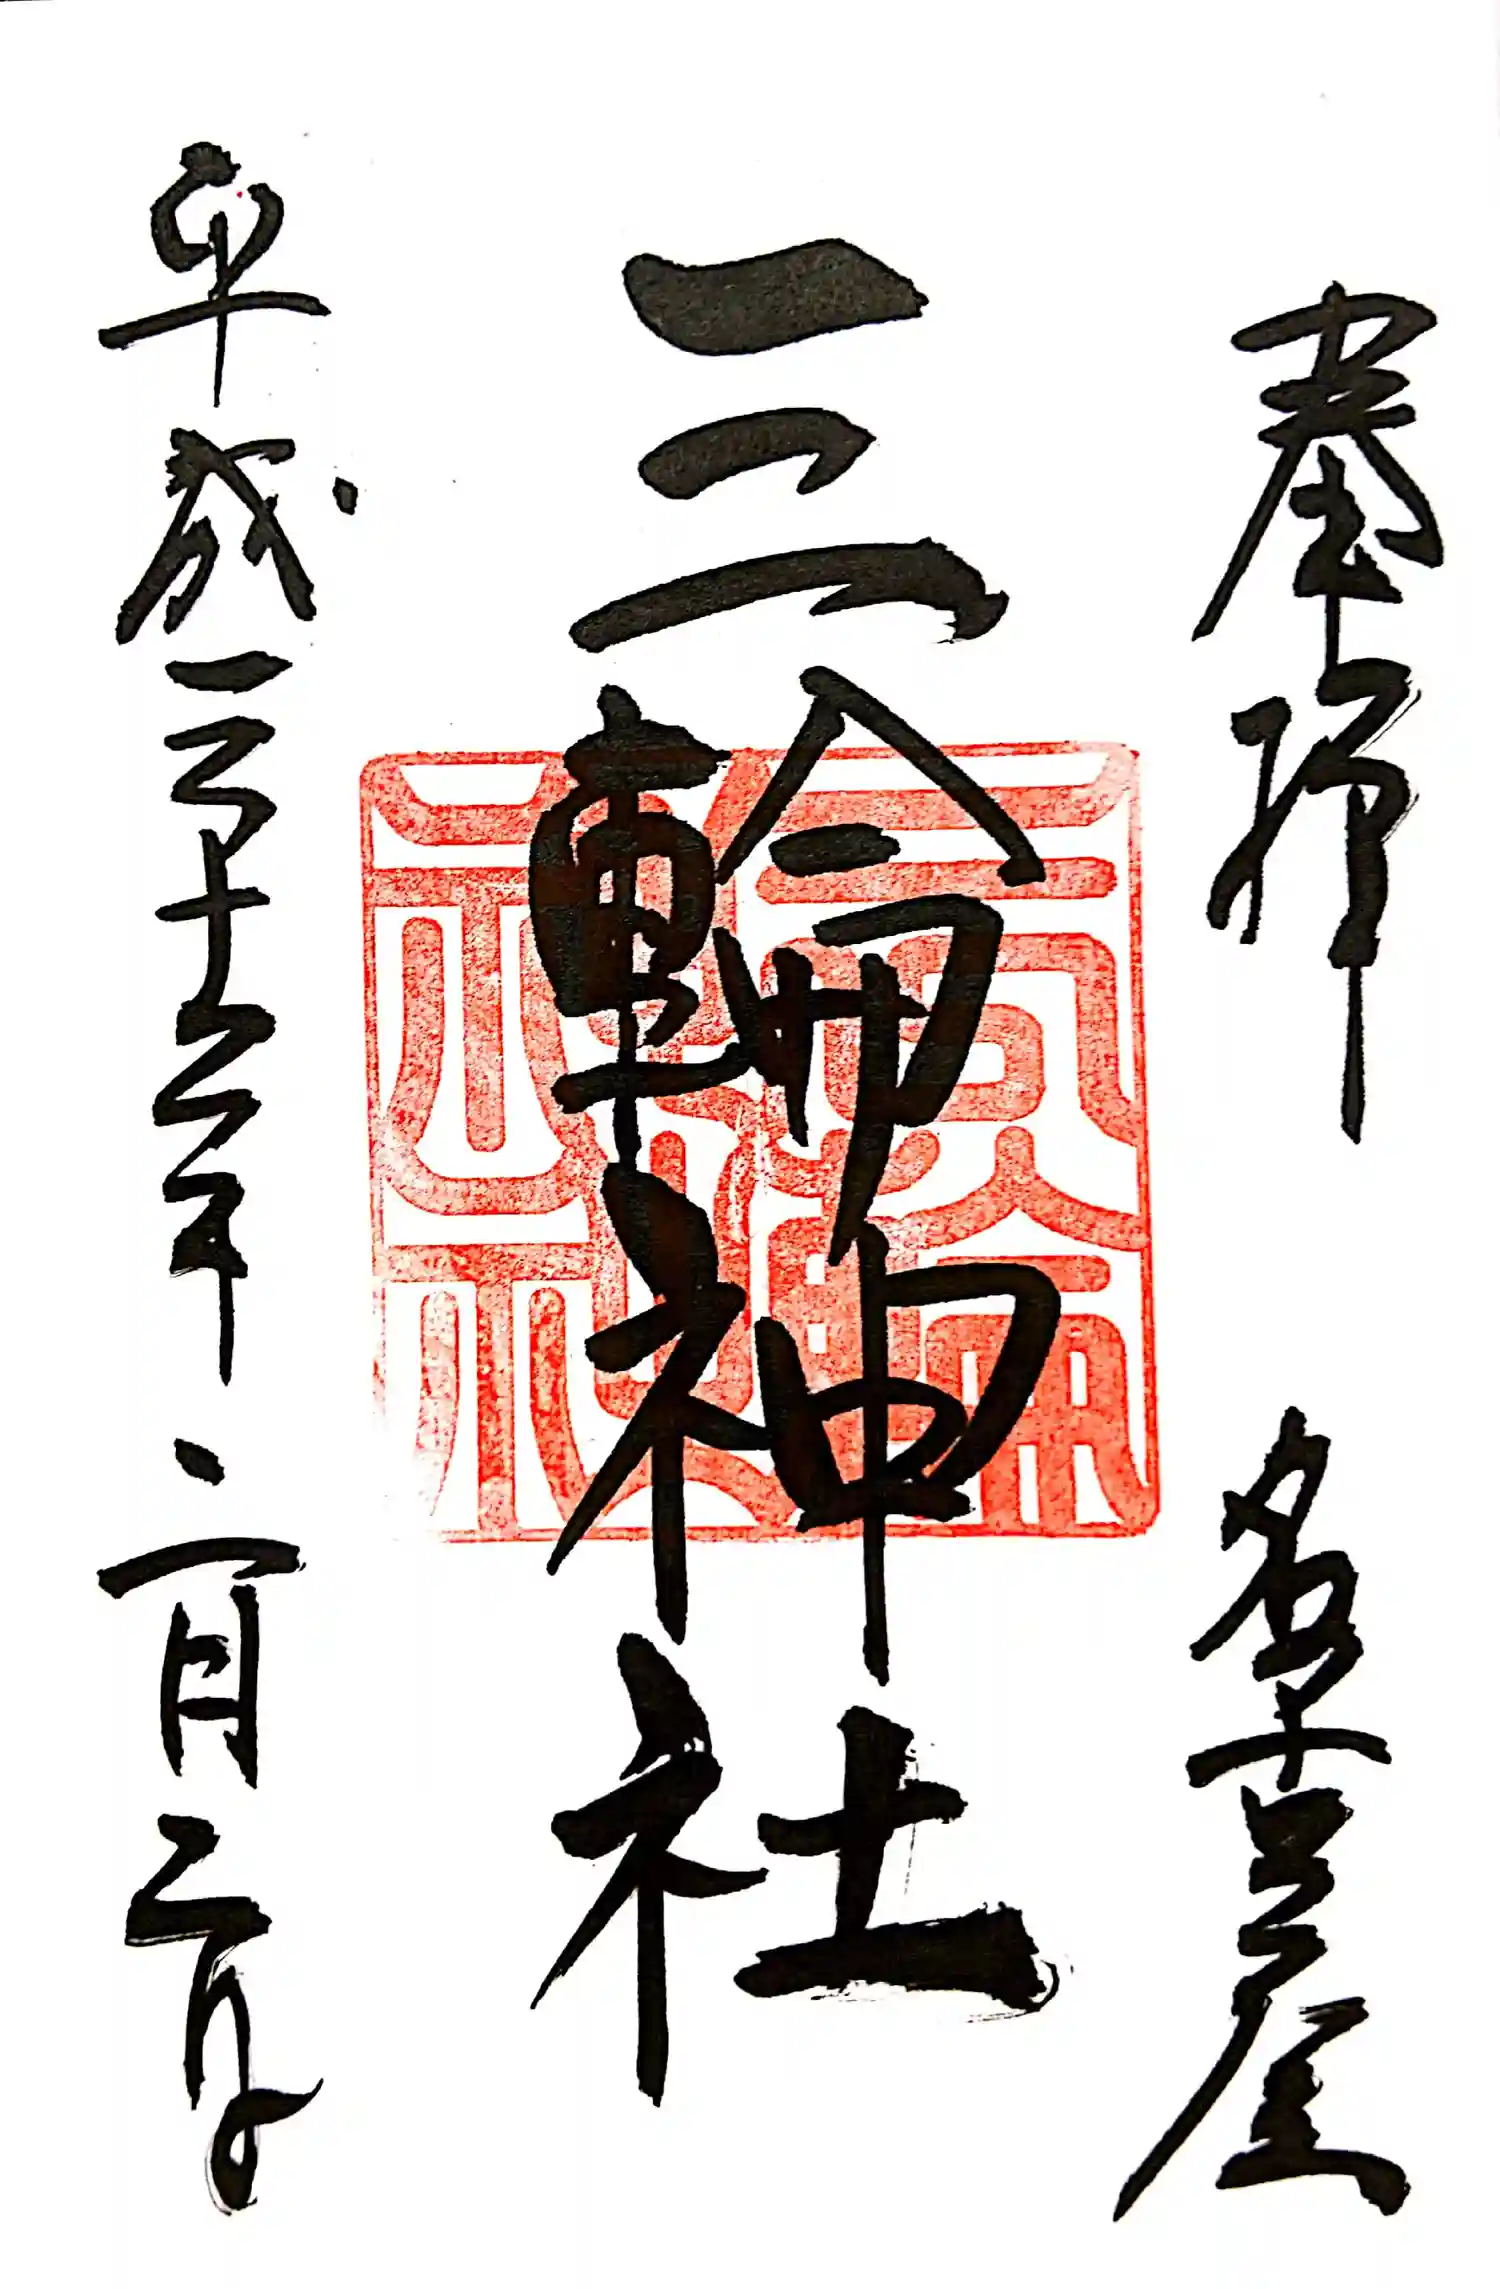 奉拝 名古屋
三輪神社
三輪神社
平成三十年二月二日